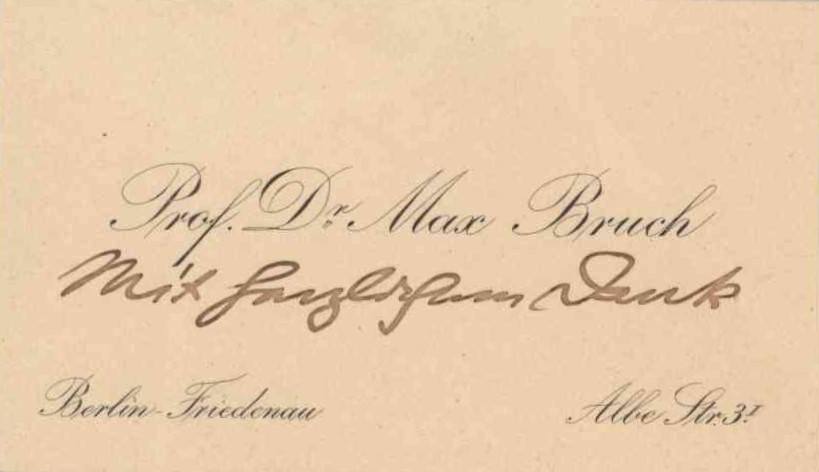 Prof. Dr. Max Bruch
Mit herzlichem Dank
Berlin-Friedenau
Albe Str. 3.I